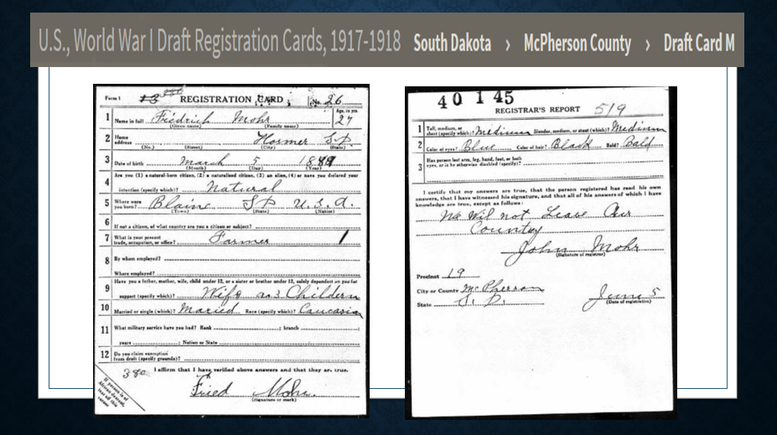 U.S., World War I Draft Registration Cards, 1917-1918 South Dakota › McPherson County › Draft Card M
Form 1 REGISTRATION CARD No. 26
1 Name in full Fiedrich Mohr Age, in yrs. 27
(Given name) (Family name)
2 Home address Hosmer S.D.
(No.) (Street) (City) (State)
3 Date of birth March 5
(Month) (Day) (Year)
4 Are you (1) a natural-born citizen, (2) a naturalized citizen, (3) an alien, (4) or have you declared your
intention (specify which)? Natural
5 Where were you born? Blaine S D U.S.A.
(Town) (State) (Nation)
6 If not a citizen, of what country are you a citizen or subject?
7 What is your present trade, occupation, or office? Farmer 1
8 By whom employed?
Where employed?
9 Have you a father, mother, wife, child under 12, or a sister or brother under 12, solely dependent on you for
support (specify which)? Wife 3 Childern
10 Married or single (which)? Maried Race (specify which)? Caucasian
11 What military service have you had? Rank ; branch
years ; Nation or State
12 Do you claim exemption from draft (specify grounds)?
380 I affirm that I have verified above answers and that they are true.
Fried Mohr.
(Signature or mark)
40 1 45
REGISTRAR'S REPORT 519
1 Tall, medium, or short (specify which)? Medium Slender, medium, or stout (which)? Medium
2 Color of eyes? Blue Color of hair? Black Bald? Bald
3 Has person lost arm, leg, hand, foot, or both eyes, or is he otherwise disabled (specify)?
I certify that my answers are true, that the person registered has read his own
answers, that I have witnessed his signature, and that all of his answers of which I have
knowledge are true, except as follows:
Wil not Leave Our
Country
John Mohr
(Signature of registrar)
Precinct 19
City or County McPherson
State S. D. June 5
(Date of registration)